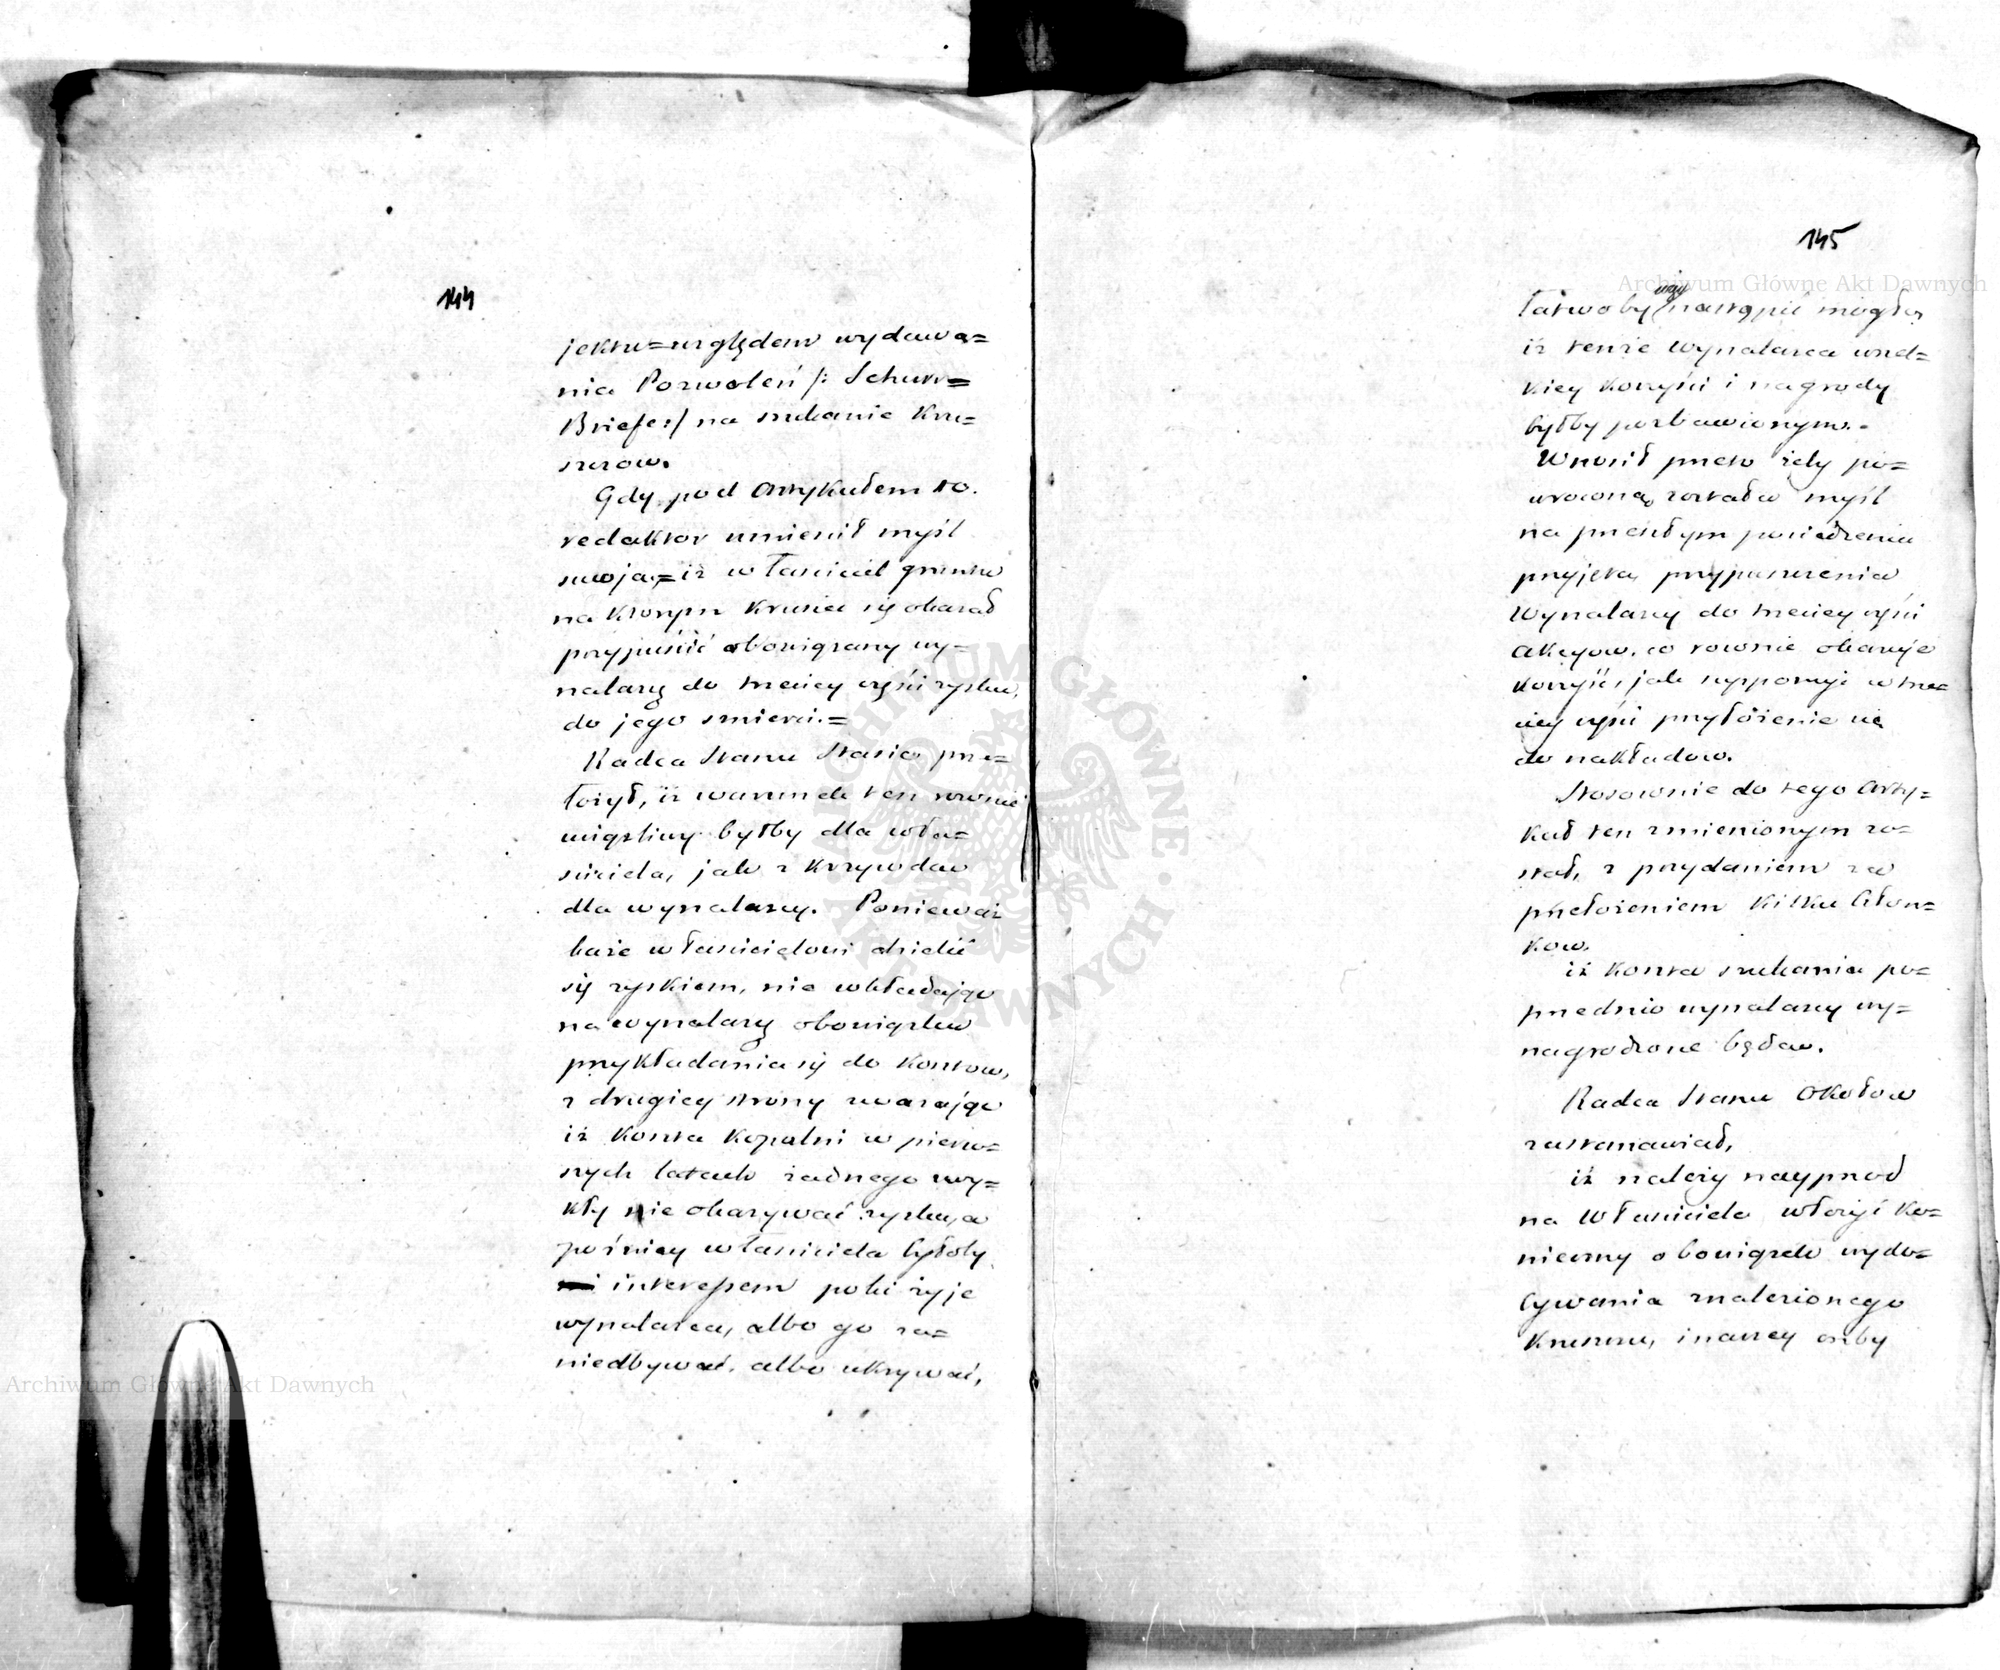 144
jektu=względem wydawa=
nia Pozwoleń /: Schurr=
Briefe:/ na szukanie Kru=
szcow.
Gdy pod Artykułem 10.
redaktor umienił myśl
swoją,=iż właściciel gruntu
na ktorym kruszec się okazał
przypuścić obowiązany wy=
nalazcę do trzeciey części zysku,
do jego smierci.=
Radca Stanu Staszic prze=
łożył, iż warunek ten rownie
uciążliwy byłby dla wła=
sciciela, jak z krzywdą
dla wynalazcy. Ponieważ
każe właścicielowi dzielić
się zyskiem, nie wkładając
na wynalazcę obowiązku
przykładania się do kosztow,
z drugiey strony uważając
iż koszta kopalni w pierw=
szych latach żadnego zwy=
kły nie okazywać zysku, a
poźniey właściciela byłoby
interessem poki żyje
wynalazca, albo go za=
niedbywać, albo ukrywać,
145
łatwoby więc nastąpić mogło,
iż tenże wynalazca wszel=
kiey korzyści i nagrody
byłby pozbawionym.
Wnosił przeto żeby po=
wroconą została myśl
na przeszłym posiedzeniu
przyjęta, przypuszczenia
Wynalazcy do trzeciey części
akcyow, co rownie okazuje
korzyść, jak suppozuje w trze=
ciey części przyłożenie się
do nakładow.
Stosownie do tego Arty=
kuł ten zmienionym zo=
stał, z przydaniem za
przełożeniem kilku Człon=
kow,
iż koszta szukania po=
przednio wynalazcy wy=
nagrodzone będą.
Radca Stanu Okołow
zastanawiał,
iż należy nayprzod
na Właściciela włożyć ko=
nieczny obowiązek wydo=
bywania znalezionego
kruszcu, inaczey osoby
Archiwum Główne Akt Dawnych
Archiwum Główne Akt Dawnych
ARCHIWUM GŁÓWNE AKT DAWNYCH